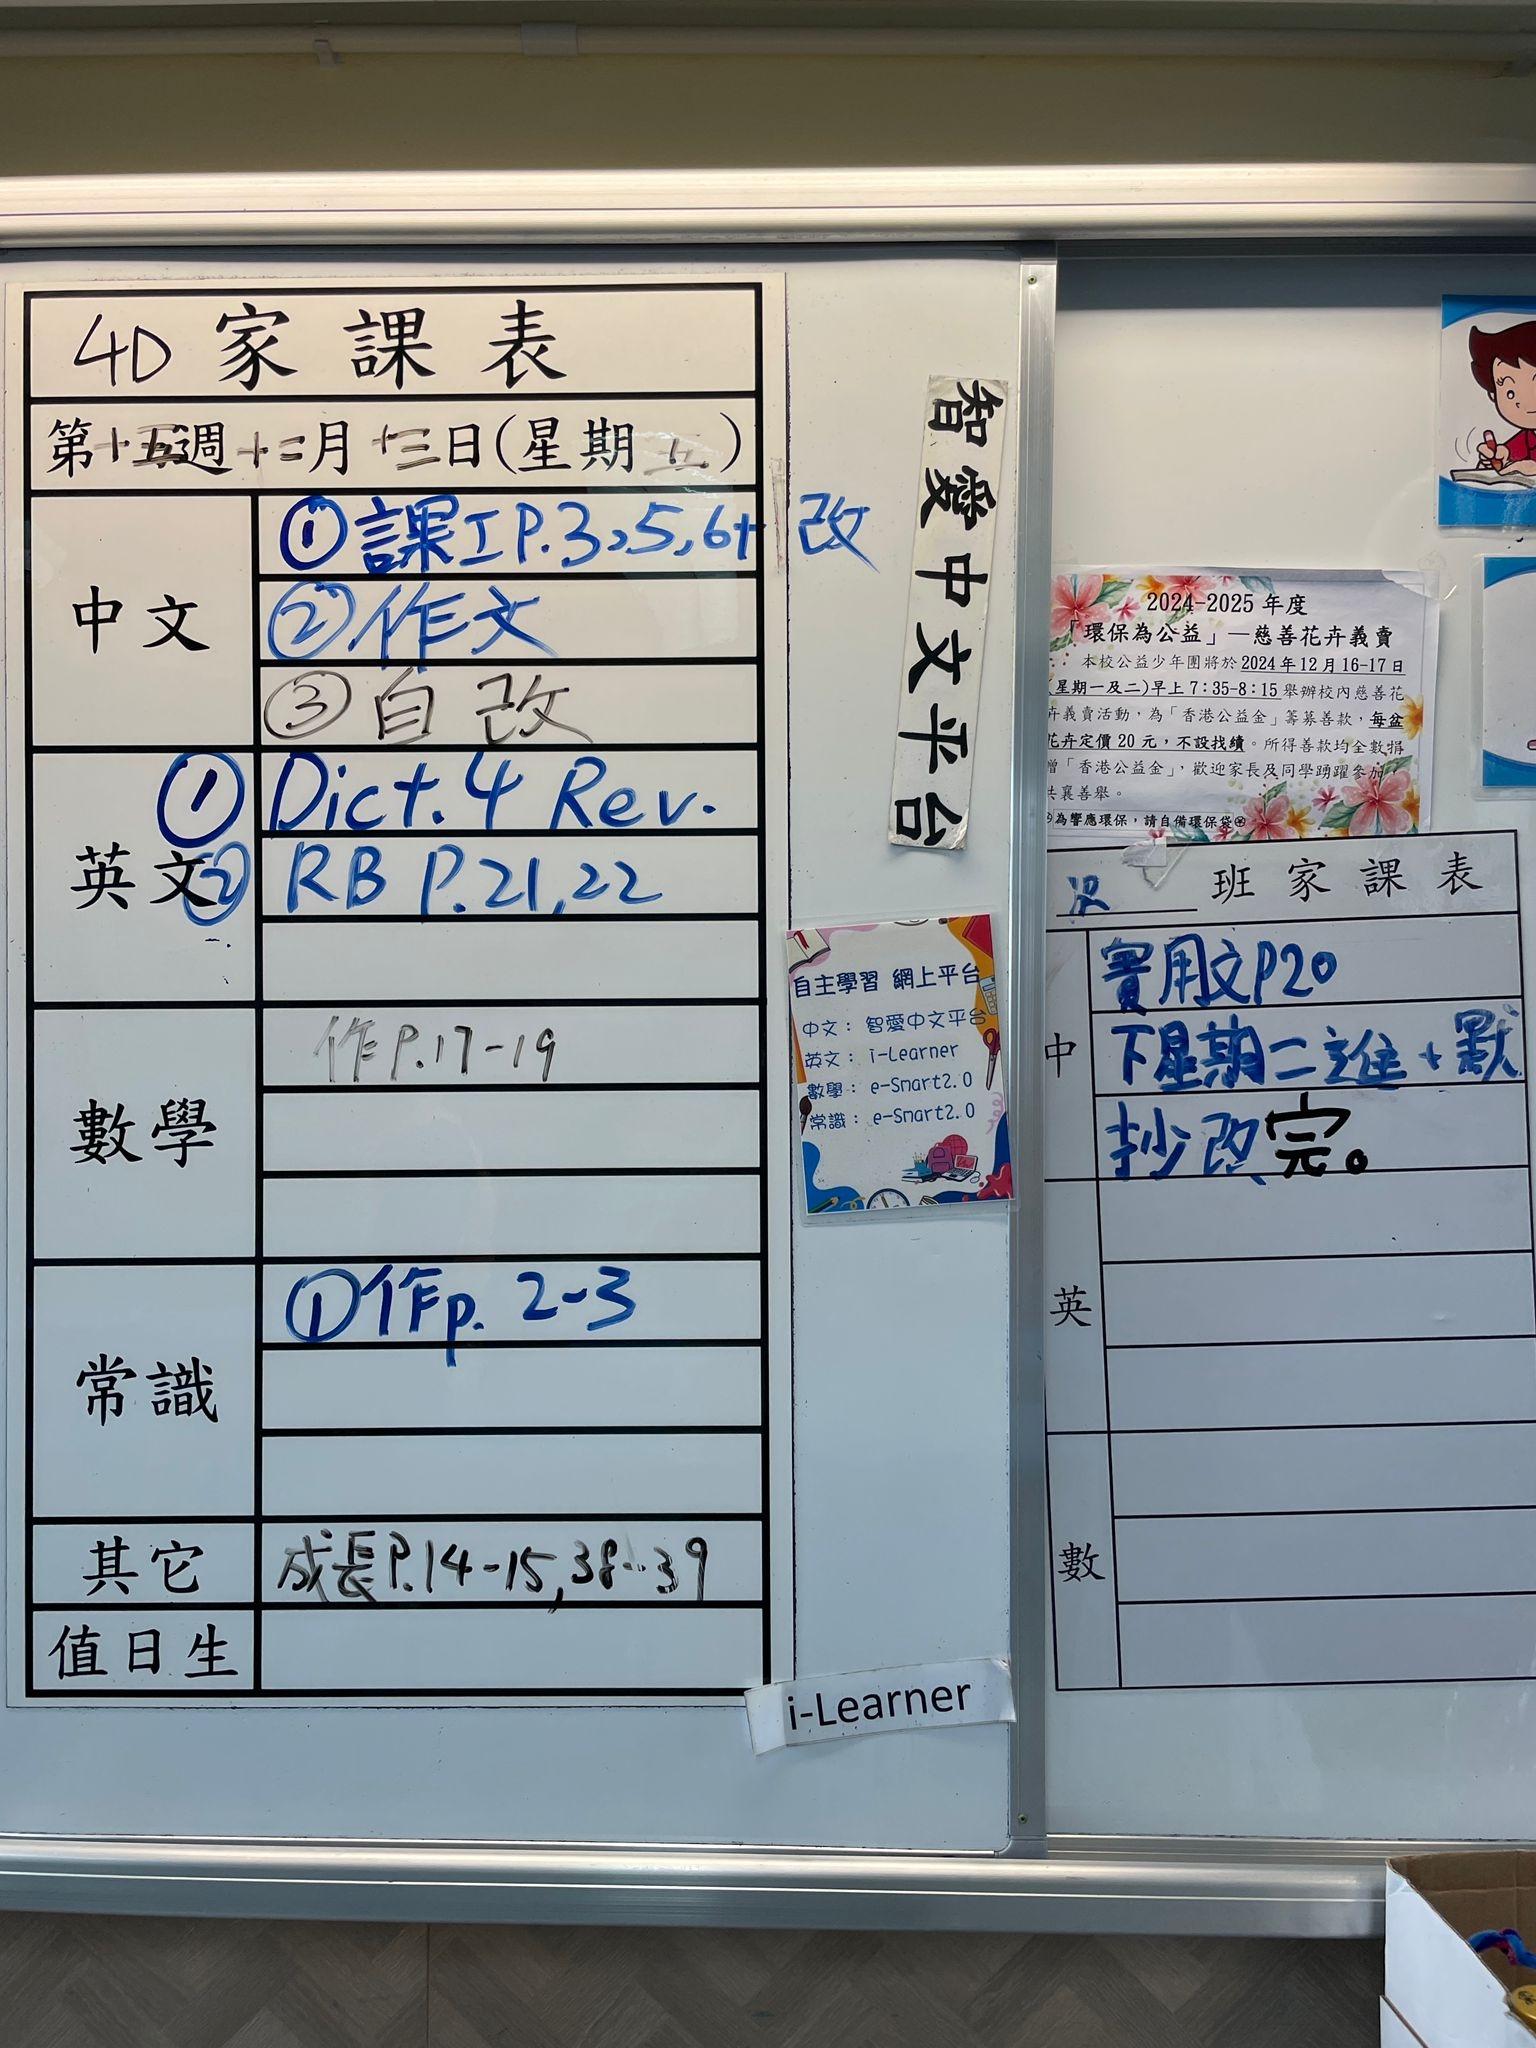 4D 家課表
第十五週十二月十三日(星期五)
中文
①課工P.3,5,6+改
②作文
③自改
英文
①Dict.4 Rev.
②RB P.21,22
數學
作P.17-19
常識
①作p. 2-3
其它
成長P.14-15,38-39
值日生
智愛中文平台
自主學習 網上平台
中文: 智愛中文平台
英文: i-Learner
數學: e-Smart2.0
常識: e-Smart2.0
i-Learner
2024-2025 年度
「環保為公益」—慈善花卉義賣
本校公益少年團將於 2024 年 12 月 16-17 日
(星期一及二)早上 7:35-8:15 舉辦校內慈善花
卉義賣活動,為「香港公益金」籌募善款,每盆
花卉定價 20 元,不設找續。所得善款均全數捐
贈「香港公益金」,歡迎家長及同學踴躍參加,
共襄善舉。
為響應環保,請自備環保袋
班家課表
中
實用文P20
下星期二進+默
抄改完。
英
數